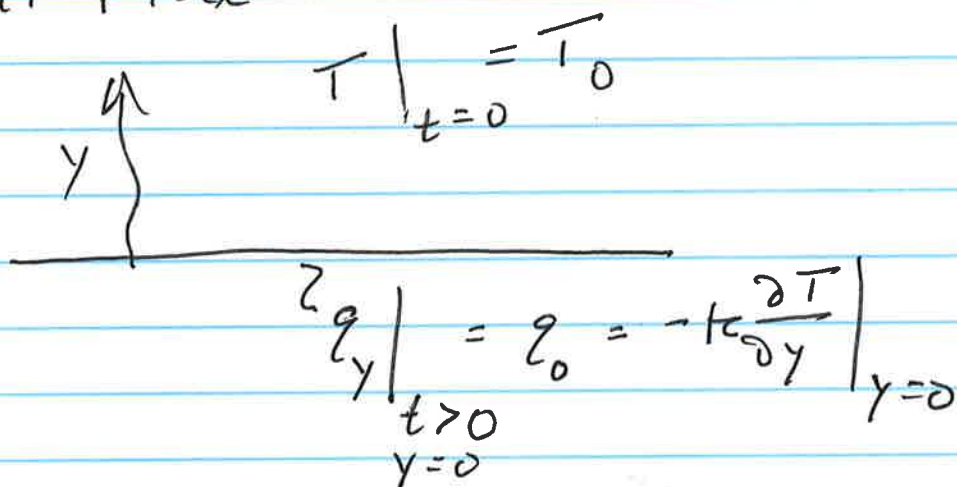 T|_{t=0} = T_0
y
q_y|_{t>0, y=0} = q_0 = -k ∂T/∂y|_{y=0}